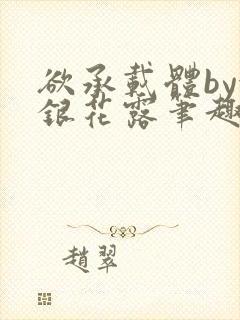 欲承載體by
銀花露筆趣
趙翠